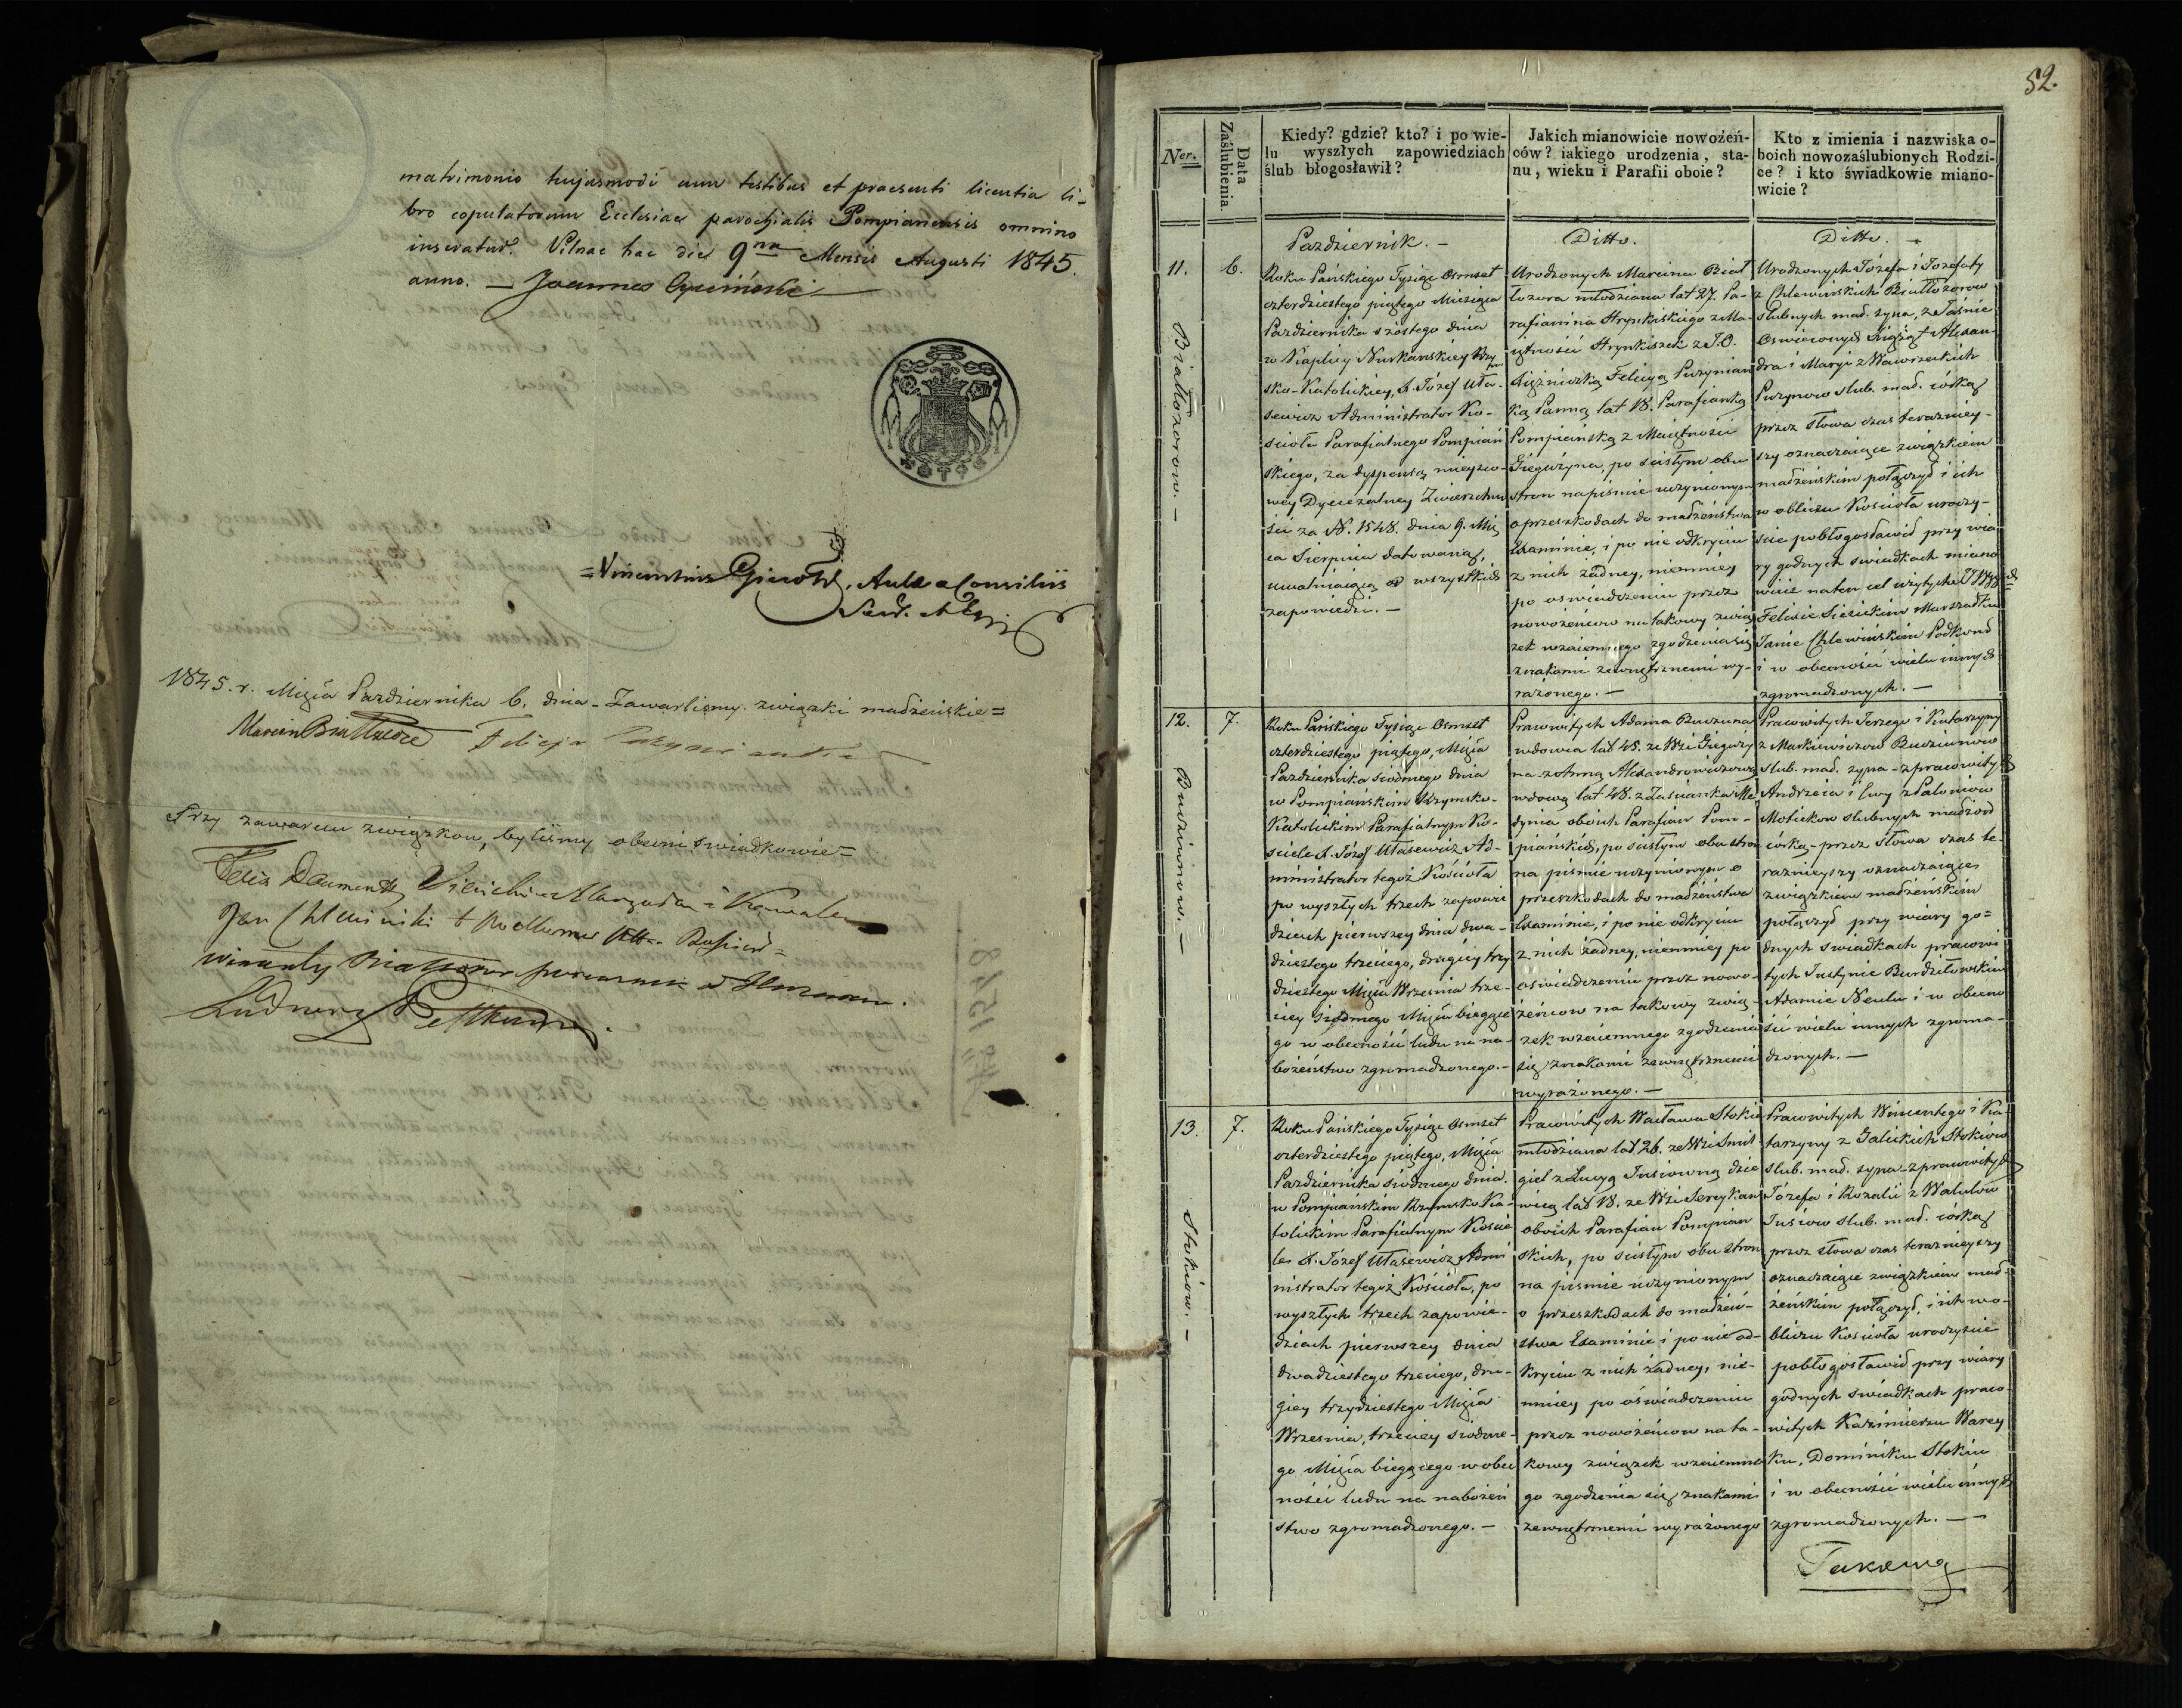 matrimonio hujusmodi cum testibus et praesenti licentia li-
bro copulatorum Ecclesiae parochialis Pompianensis omnino
inseratur. Vilnae hac die 9na Mensis Augusti 1845.
anno. — Joannes
= Vincentius Aulae a Consiliis
1845. r. Mięsia Pazdziernika 6. dnia - Zawarlismy związki madżeńskie =
Marcin Białłozor Felicja
Przy zawarciu związkow, byliśmy obecni swiadkowie =
52.
Ner.
Data Zaślubienia.
Kiedy? gdzie? kto? i po wie-
lu wyszłych zapowiedziach
ślub błogosławił?
Jakich mianowicie nowożeń-
ców? iakiego urodzenia, sta-
nu, wieku i Parafii oboie?
Kto z imienia i nazwiska o-
boich nowozaślubionych Rodzi-
ce? i kto świadkowie miano-
wicie?
11.
Białłozorow. —
6.
Pazdziernik. —
Roku Pańskiego Tysiąc Osmset
czterdziestego piątego Miesiąca
Pazdziernika szóstego dnia
w Kaplicy Nurkanskiey Rzym
sko-Katolickiey, X. Józef Uła-
sewicz Administrator Ko-
scioła Parafialnego Pompiań
skiego, za dyspensą mieysco-
wey Dyecezalney Zwierzchno
ści za N. 1548. dnia 9. Mię
ca Sierpnia datowaną,
uwalniaiącą od wszystkich
zapowiedzi. —
Ditto.
Urodzonych Marcina Biał
łozora młodziana lat 27. Pa-
rafianina Hrynkiskiego z Ma-
iętności Hrynkiszek z J.O.
Xiężniczką Felicyą Puzynian
ką Panną lat 18. Parafianką
Pompiańską z Maiętności
Giegużyna, po scisłym obu
stron na piśmie uczynionym
o przeszkodach do madżeństwa
Examinie, i po nie odkryciu
z nich żadney, niemniey
po oswiadczeniu przez
nowożeńcow na takowy zwią
zek wzaiemnego zgodzenia się
znakami zewnętrznemi wy-
rażonego. —
Ditto. —
Urodzonych Józefa i Jozefaty
z Chlewinskich Białłozorow
slubnych mad. syna, z Jaśnie
Oswieconych Xiążąt Alexan-
dra i Maryi z Wawrzeckich
Puzynow slub. mad. córką
przez słowa czas terazniey-
szy oznaczaiące związkiem
madżeńskim połączył i ich
w obliczu Kościoła uroczy-
scie pobłogosławił przy wia
ry godnych swiadkach miano
wicie na ten cel użytych JWych
Felixie Siesickim Marszałku
Janie Chlewińskim Podkom
i w obecności wielu innych
zgromadzonych. —
12.
Budzinow. —
7.
Roku Pańskiego Tysiąc Osmset
czterdziestego piątego, Mięsia
Pazdziernika siodmego dnia
w Pompiańskim Rzymsko-
Katolickim Parafialnym Ko-
sciele X. Józef Ułasewicz Ad-
ministrator tegoż Kościoła
po wyszłych trzech zapowie
dziach pierwszey dnia dwa-
dziestego trzeciego, drugiey trzy
dziestego Mięsia Wrzesnia trze-
ciey siodmego Mięsia bieżące
go w obecności ludu na na-
bożeństwo zgromadzonego. —
Pracowitych Adama Budzina
wdowca lat 45. ze Wsi Gieguży
na z Anną Alexandrowiczową
wdową lat 48. z Zascianka Me
dynia oboich Parafian Pom-
piańskich, po scisłym obu stron
na pismie uczynionym o
przeszkodach do madżeństwa
Examinie, i po nie odkryciu
z nich żadney, niemniey po
oswiadczeniu przez nowo-
żeńcow na takowy zwią-
zek wzaiemnego zgodzenia
się znakami zewnętrznemi
wyrażonego. —
Pracowitych Jerzego i Katarzyny
z Markiewiczow Budzinow
slub. mad. syna - z pracowitych
Andrzeia i Ewy z Paloniow
Motiekow slubnych madżon
córką - przez słowa czas te
raznieyszy oznaczaiące
związkiem madżeńskim
połączył przy wiary go=
dnych swiadkach pracowi
tych Justynie Burdziłowskim
Adamie Neulu i w obecno
ści wielu innych zgroma-
dzonych. —
13.
Stokiow. —
7.
Roku Pańskiego Tysiąc Osmset
czterdziestego piątego, Mięsia
Pazdziernika siodmego dnia.
w Pompiańskim Rzymsko Ka-
tolickim Parafialnym Koscie
le X. Józef Ułasewicz Admi
nistrator tegoż Kościoła, po
wyszłych trzech zapowie-
dziach pierwszey dnia
dwadziestego trzeciego, dru-
giey trzydziestego Mięsia
Wrzesnia, trzeciey siodme-
go Mięsia bieżącego w obec
ności ludu na nabożeń
stwo zgromadzonego. —
Pracowitych Wacława Stokia
młodziana lat 26. ze Wsi Smil
giel z Łucyą Jusiowną dzie
wicą lat 18. ze Wsi Sereykan
oboich Parafian Pompian
skich, po scisłym obu stron
na pismie uczynionym
o przeszkodach do madżeń-
stwa Examinie i po nie od-
kryciu z nich żadney, nie-
mniey po oświadczeniu
przez nowożeńcow na ta-
kowy związek wzaiemne
go zgodzenia się znakami
zewnętrznemi wyrażonego
Pracowitych Wincentego i Ka-
tarzyny z Galickich Stokiow
slub. mad. syna - z pracowitych
Józefa i Rozalii z Walulow
Jusiow slub. mad. córką
przez słowa czas teraznieyszy
oznaczaiące związkiem mad-
żeńskim połączył, i ich w o-
bliczu Kościoła uroczyscie
pobłogosławił przy wiary
godnych swiadkach praco-
witych Kazimierzu Warey
ku, Dominiku Stokiu
i w obecności wielu innych
zgromadzonych. —